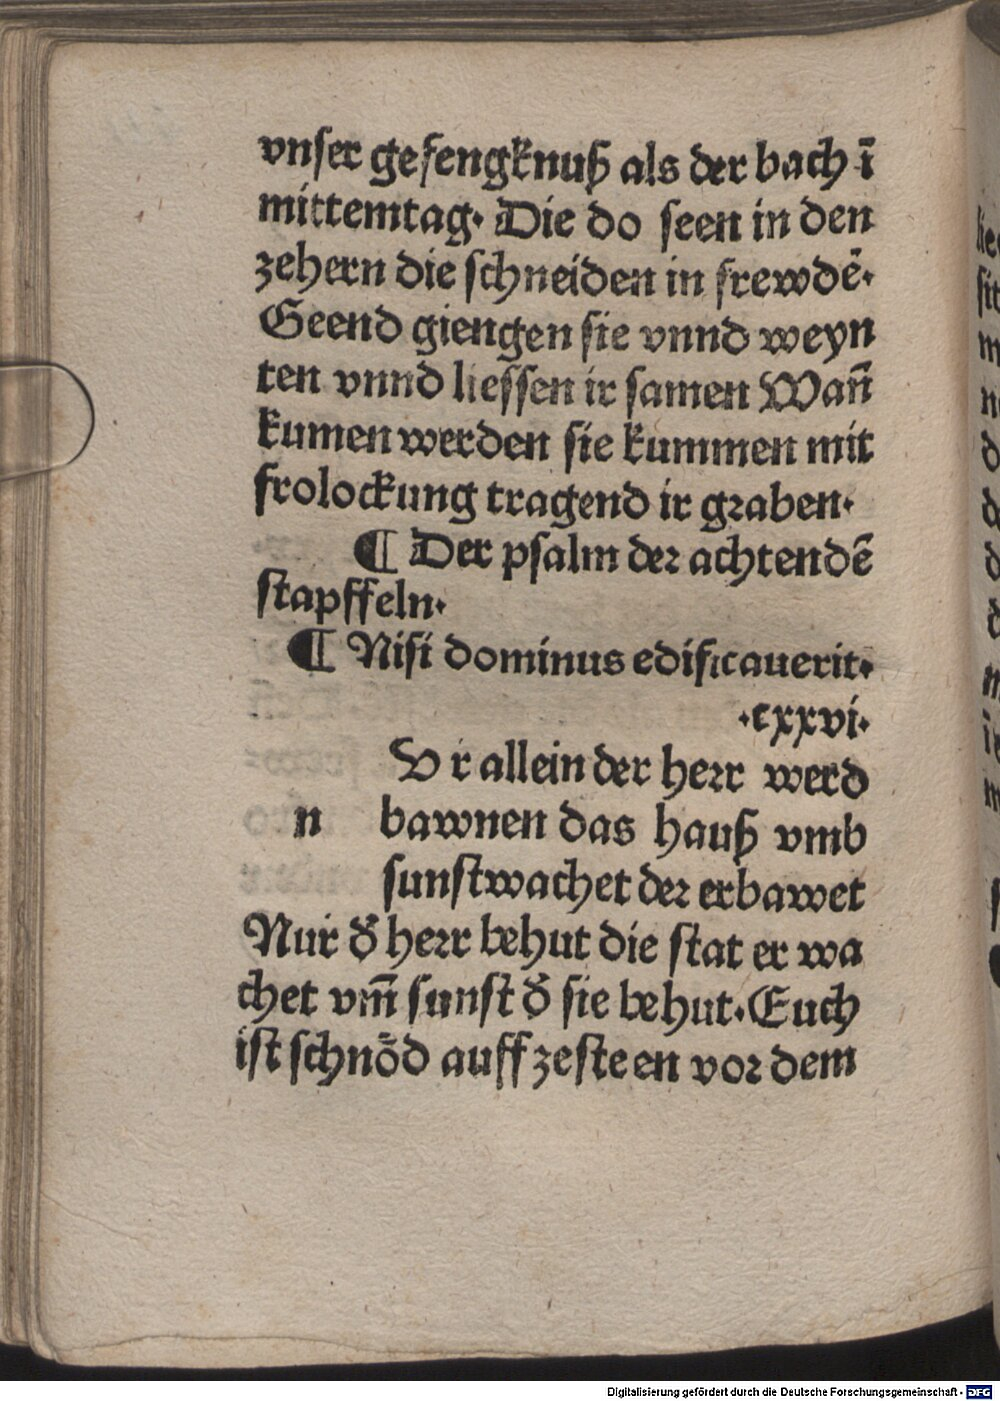 vnser gefengknuß als der bach ī
mittemtag. Die do seen in den
zehern die schneiden in frewdē.
Geend giengen sie vnnd weyn
ten vnnd liessen ir samen Wan̄
kumen werden sie kummen mit
frolockung tragend ir graben.
¶ Der psalm der achtendē
stapffeln.
¶ Nisi dominus edificauerit.
.cxxvi.
V r allein der herr werd
n bawnen das hauß vmb
sunst wachet der erbawet
Nur d̄ herr behut die stat er wa
chet vm̄ sunst d̄ sie behut. Euch
ist schnöd auff zesteen vor dem
Digitalisierung gefördert durch die Deutsche Forschungsgemeinschaft - DFG